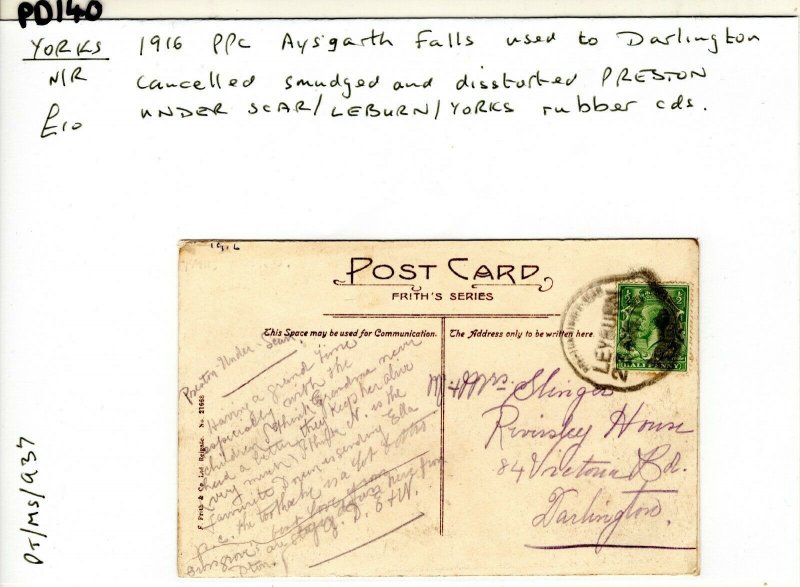 PD140
YORKS 1916 PPC Aysgarth Falls used to Darlington
N/R cancelled smudged and disstorted PRESTON
£10 UNDER SCAR/LEBURN/YORKS rubber cds.
PT/MS/937
1916
POST CARD
FRITH'S SERIES
This Space may be used for Communication.
The Address only to be written here.
HALF PENNY
LEYBURN
F. Frith & Co. Ltd. Reigate. No. 21668
Preston-Under-Scar
Having a grand time
especially with the
children. I think Grandma never
had a better, they keep her alive
(very much) I think N. is the
favourite. I am sending Ella
P.C. The toothache is a lot
love
here from
Mr & Mrs. Slinger
House
84 Victoria Rd.
Darlington.